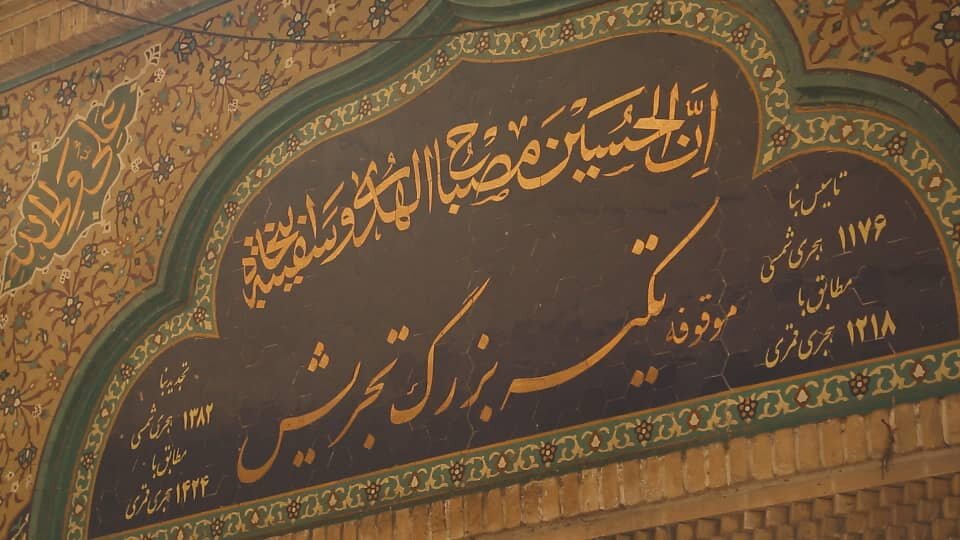 إنَّ الحُسَین مَصباحُ الهُدی وَ سَفینة النجاة
موقوفه
تکیه بزرگ تجریش
تاسیس بنا
۱۱۷۶ هجری شمسی
مطابق با
۱۲۱۸ هجری قمری
تجدید بنا
۱۳۸۲ هجری شمسی
مطابق با
۱۴۲۴ هجری قمری